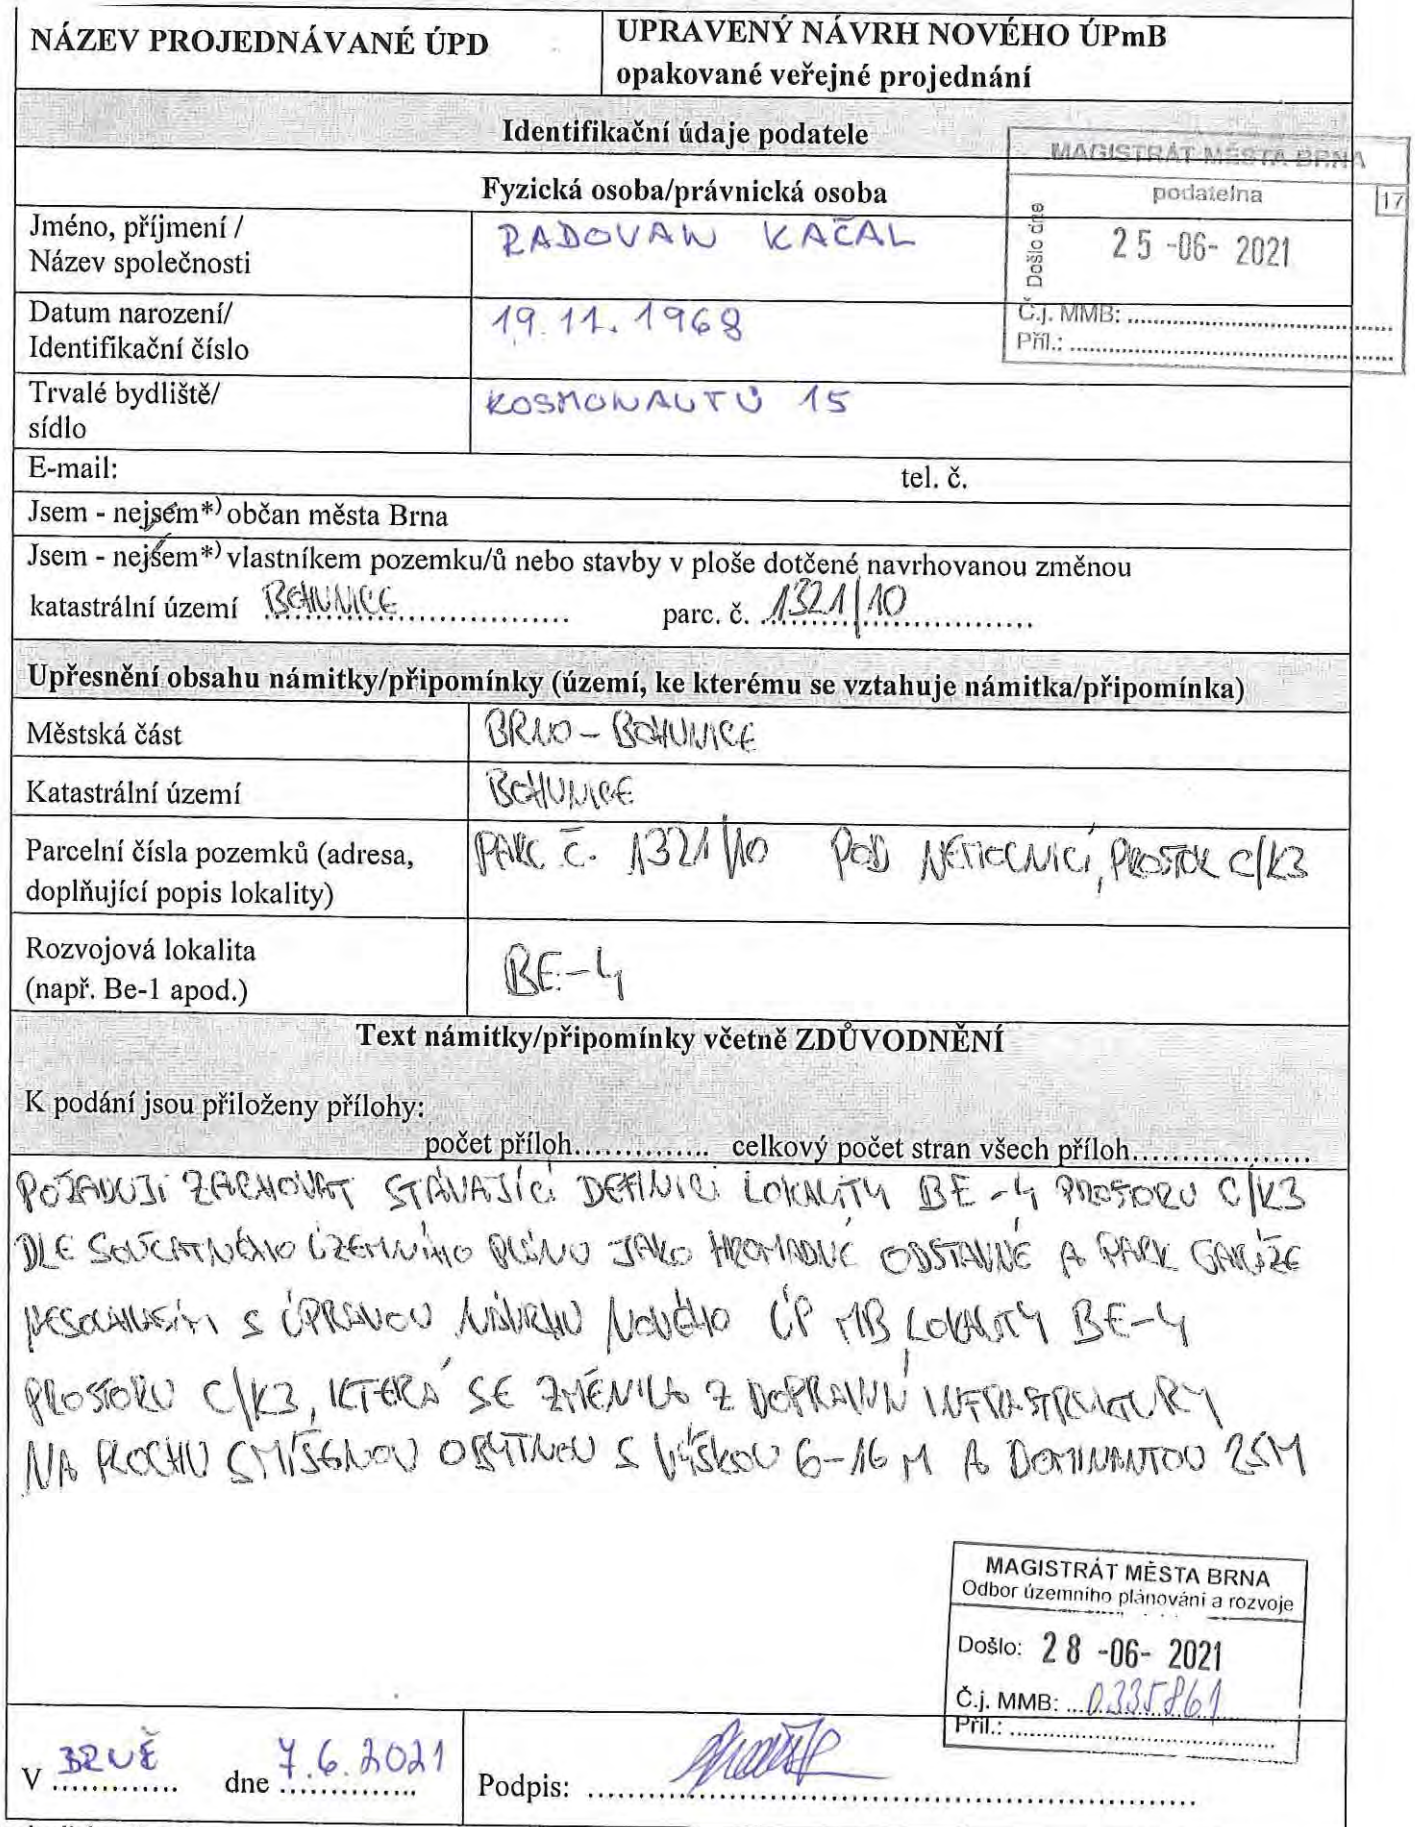 NÁZEV PROJEDNÁVANÉ ÚPD
UPRAVENÝ NÁVRH NOVÉHO ÚPmB
opakované veřejné projednání
Identifikační údaje podatele
MAGISTRÁT MĚSTA BRNA
podatelna
17
Došlo dne
25 -06- 2021
Č.j. MMB: ........................................
Příl.: ........................................
Fyzická osoba/právnická osoba
Jméno, příjmení /
Název společnosti
RADOVAN KAČAL
Datum narození/
Identifikační číslo
19.11.1968
Trvalé bydliště/
sídlo
KOSMONAUTŮ 15
E-mail: tel. č.
Jsem - nejsem*) občan města Brna
Jsem - nejsem*) vlastníkem pozemku/ů nebo stavby v ploše dotčené navrhovanou změnou
katastrální území BOHUNICE parc. č. 1321/10
Upřesnění obsahu námitky/připomínky (území, ke kterému se vztahuje námitka/připomínka)
Městská část
BRNO - BOHUNICE
Katastrální území
BOHUNICE
Parcelní čísla pozemků (adresa,
doplňující popis lokality)
PARC Č. 1321/10 POD NEMOCNICÍ, PROSTOR C/K3
Rozvojová lokalita
(např. Be-1 apod.)
BE-4
Text námitky/připomínky včetně ZDŮVODNĚNÍ
K podání jsou přiloženy přílohy:
počet příloh.............. celkový počet stran všech příloh..................
POŽADUJI ZACHOVAT STÁVAJÍCÍ DEFINICI LOKALITY BE-4 PROSTORU C/K3
DLE SOUČASTNÉHO ÚZEMNÍHO PLÁNU JAKO HROMADNÉ ODSTAVNÉ A PARK GARÁŽE
NESOUHLASÍM S ÚPRAVOU NÁVRHU NOVÉHO ÚP MB LOKALITY BE-4
PROSTORU C/K3, KTERÁ SE ZMĚNILA Z DOPRAVNÍ INFRASTRUKTURY
NA PLOCHU SMÍŠENOU OBYTNOU S VÝŠKOU 6-16 M A DOMINANTOU 25M
MAGISTRÁT MĚSTA BRNA
Odbor územního plánování a rozvoje
Došlo: 28 -06- 2021
Č.j. MMB: ...0335861
Příl.: ........................................
V BRNĚ dne 7.6.2021
Podpis: ........................................